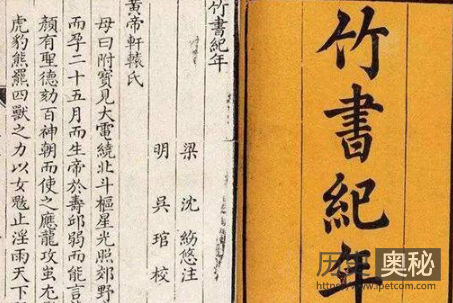 竹書紀年
竹書紀年
梁 沈約悠注
明 吳琯校
黃帝軒轅氏
母曰附寳見大電繞北斗樞星光照郊野
而孕二十五月而生帝於壽邱弱而能言
顏有聖德劾百神朝而使之應龍攻蚩尤
虎豹熊羆四獸之力以女魃止淫雨天下
历史奥秘
www.ipetcom.com